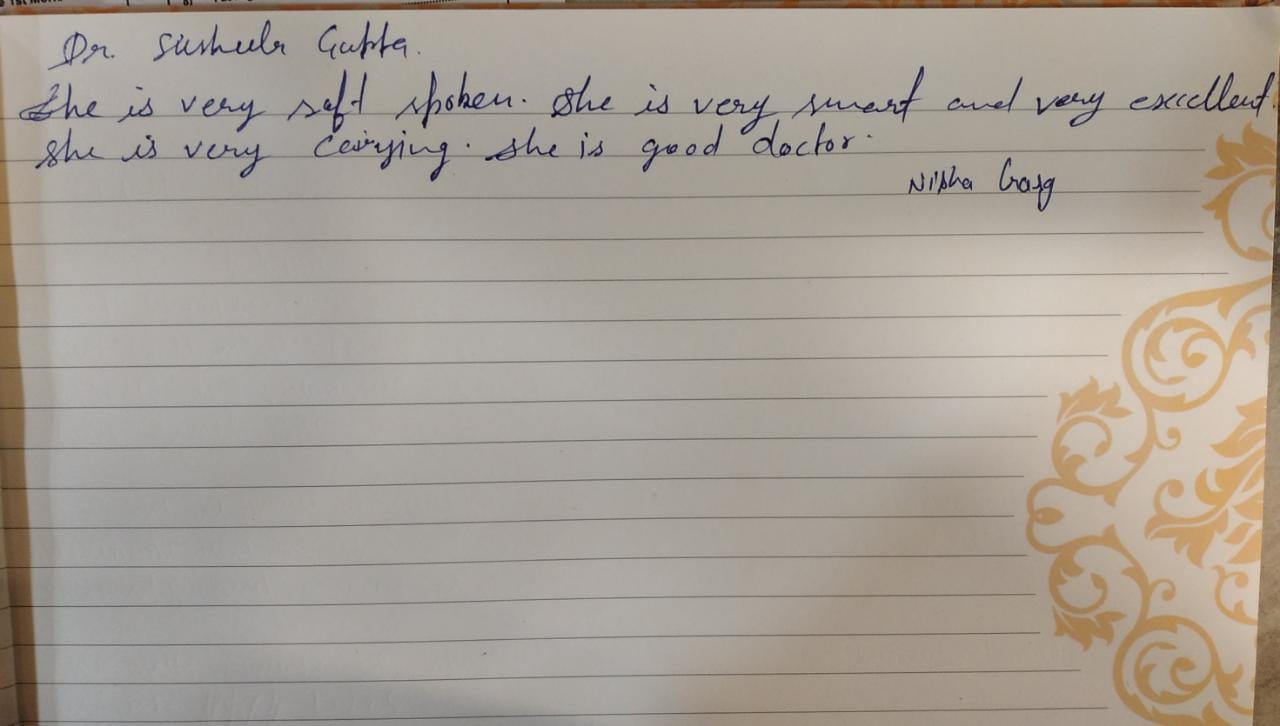 Dr. Susheela Gupta.
She is very soft spoken. She is very smart and very excellent.
She is very Cairying. She is good doctor.
Nisha Garg